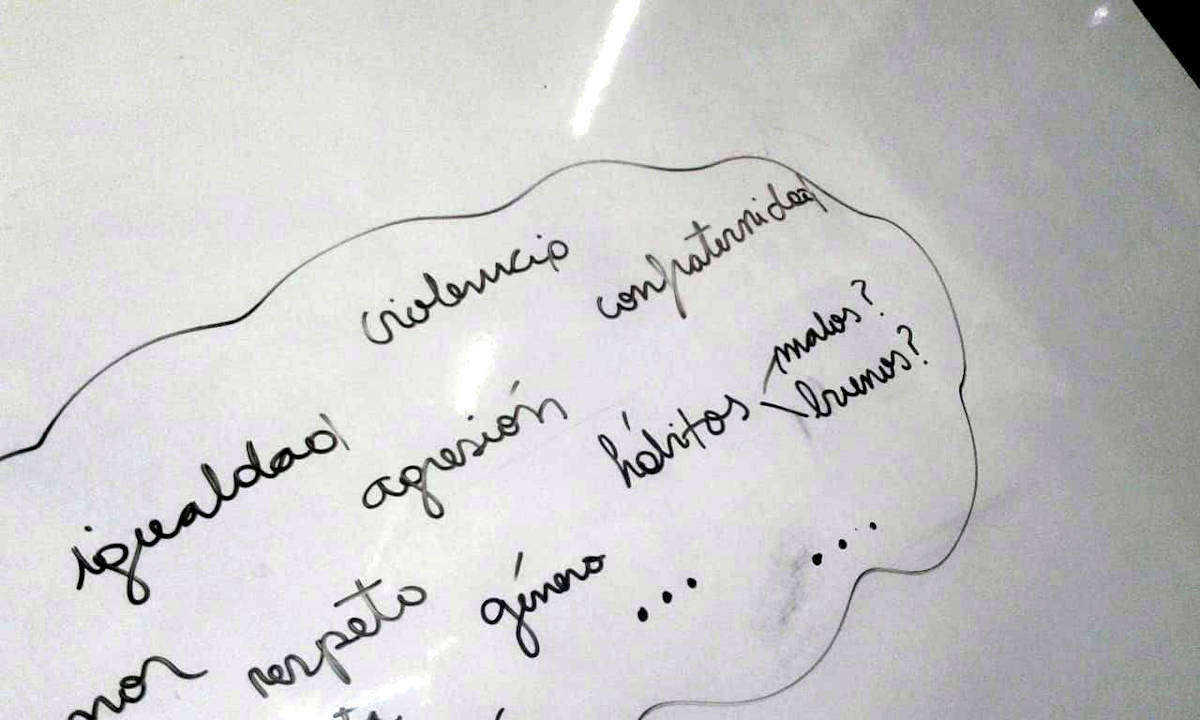 violencia confraternidad
igualdad agresión hábitos malos?
buenos?
respeto género ... ...